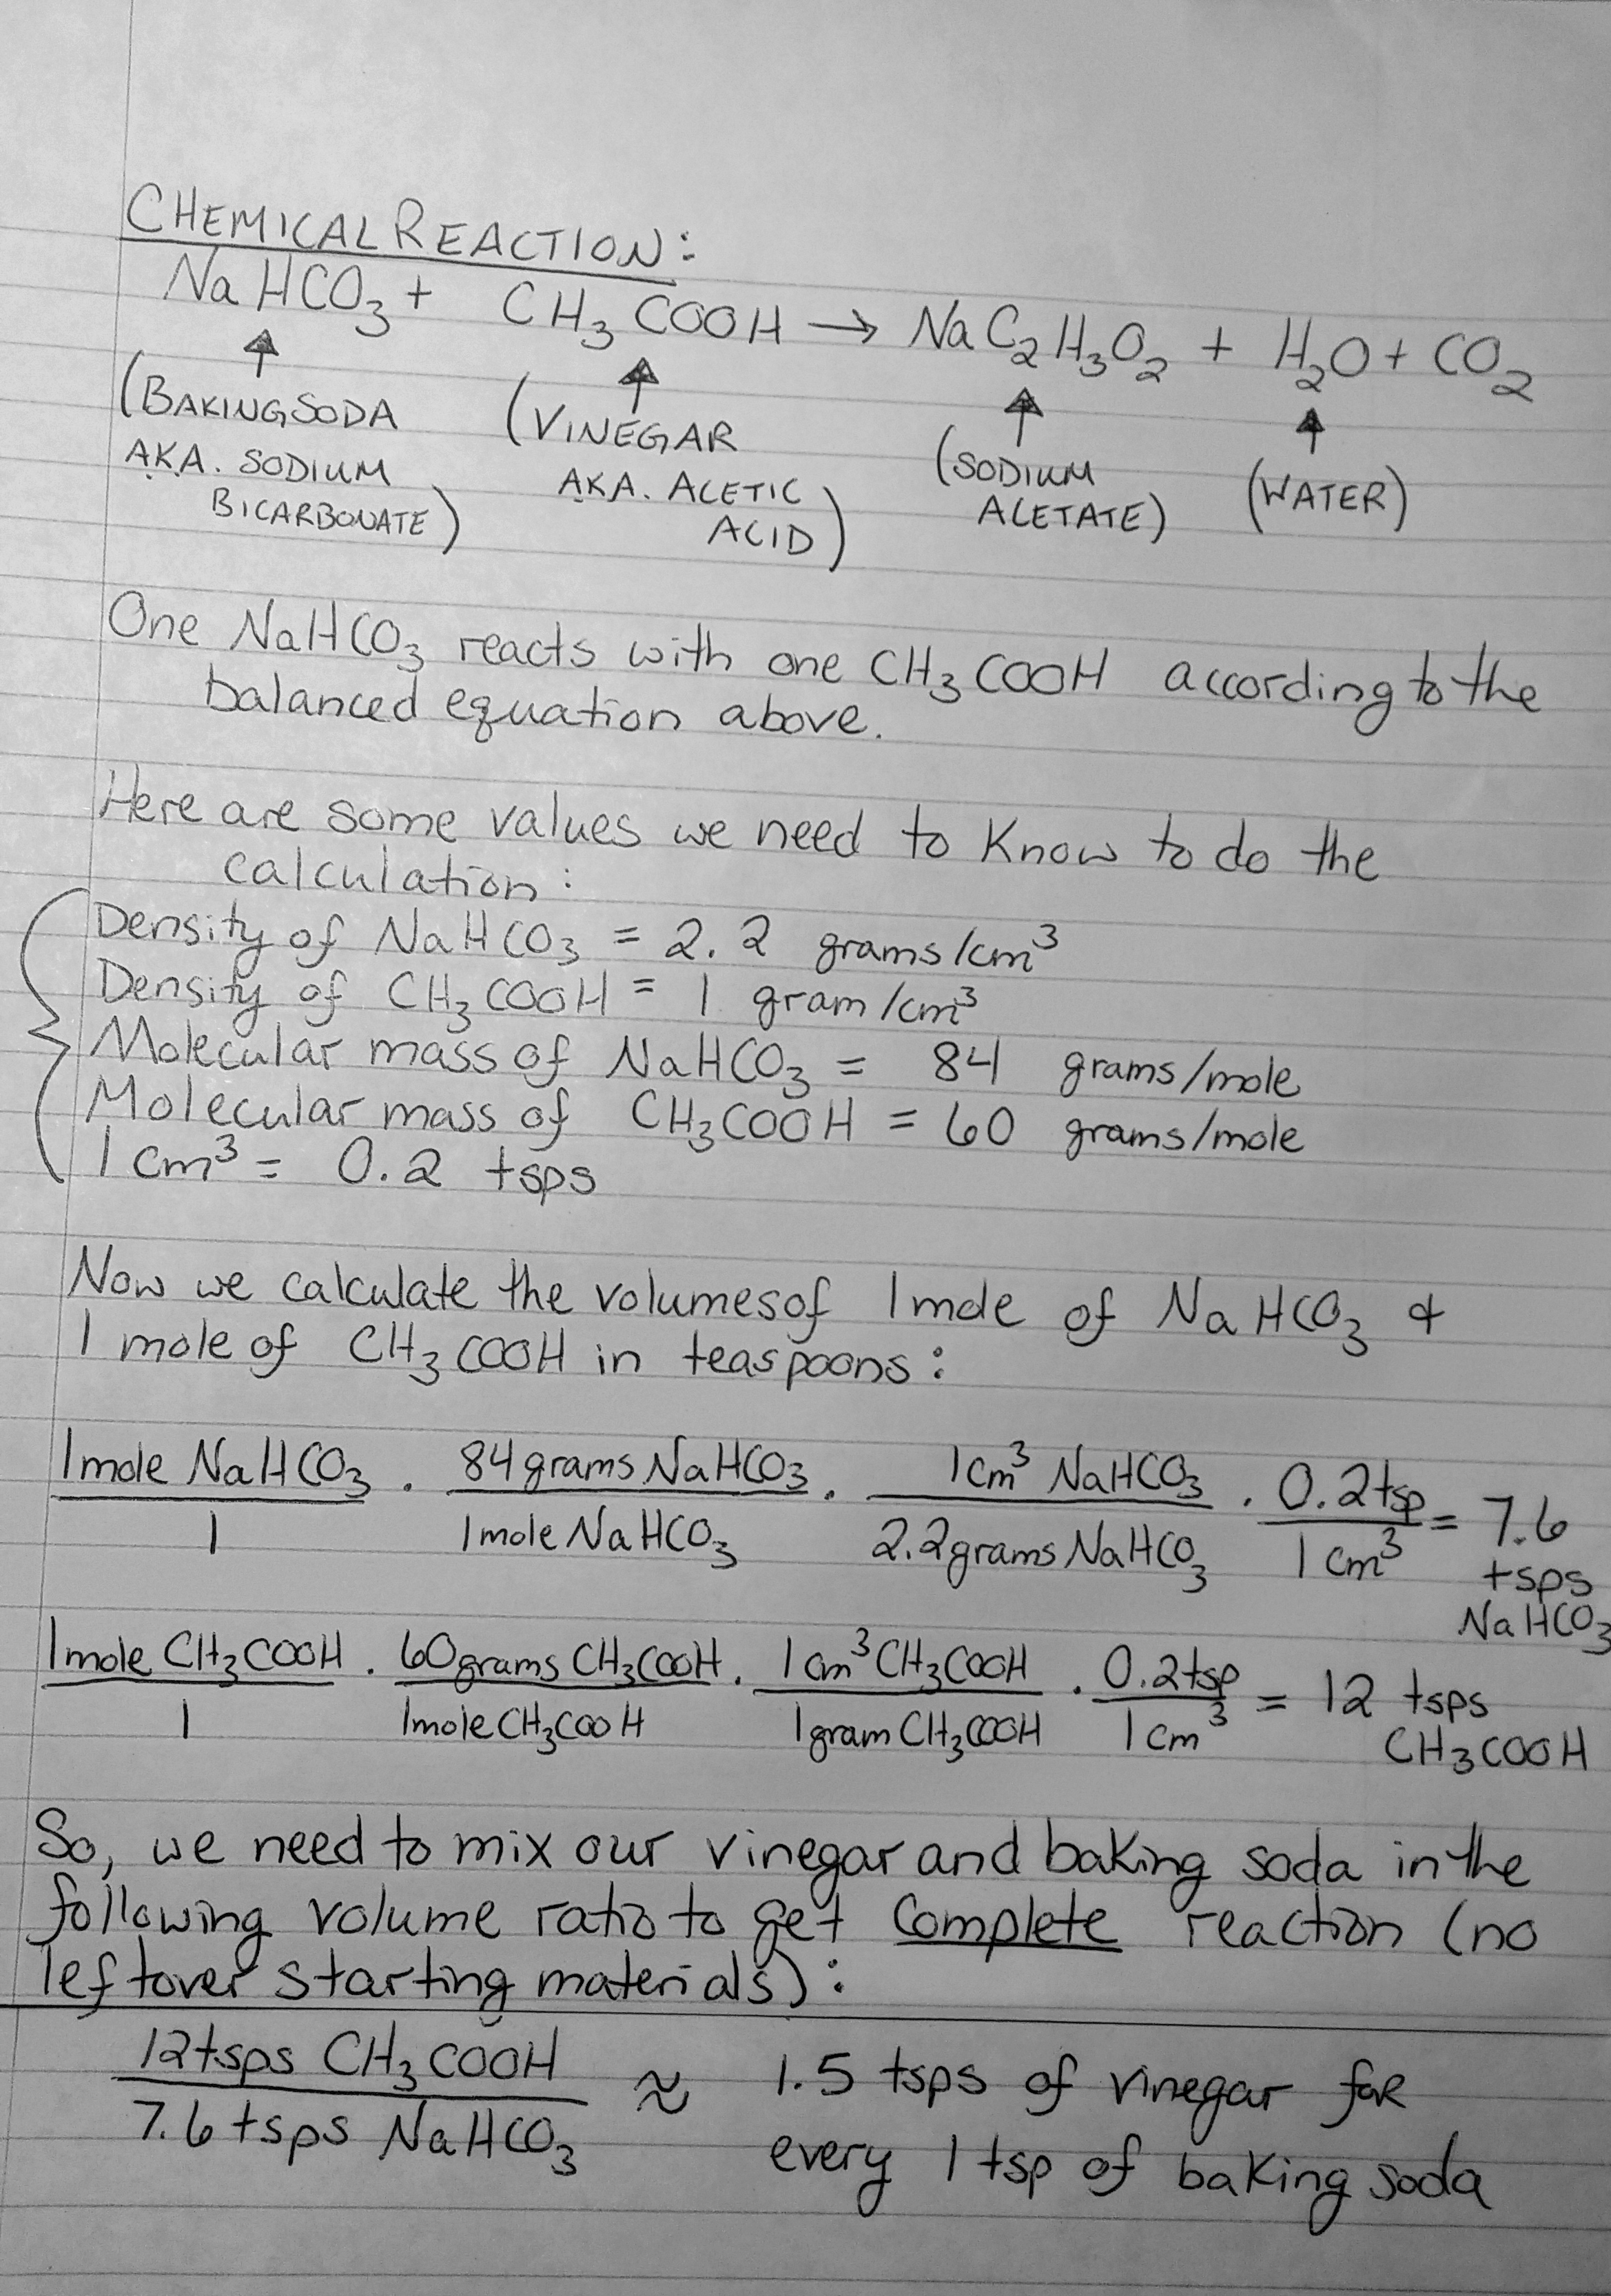 CHEMICAL REACTION:
NaHCO₃ + CH₃COOH → NaC₂H₃O₂ + H₂O + CO₂
(BAKING SODA AKA. SODIUM BICARBONATE)
(VINEGAR AKA. ACETIC ACID)
(SODIUM ACETATE)
(WATER)
One NaHCO₃ reacts with one CH₃COOH according to the
balanced equation above.
Here are some values we need to know to do the
calculation:
Density of NaHCO₃ = 2.2 grams/cm³
Density of CH₃COOH = 1 gram/cm³
Molecular mass of NaHCO₃ = 84 grams/mole
Molecular mass of CH₃COOH = 60 grams/mole
1 cm³ = 0.2 tsps
Now we calculate the volumes of 1 mole of NaHCO₃ &
1 mole of CH₃COOH in teaspoons:
1 mole NaHCO₃/1 · 84 grams NaHCO₃/1 mole NaHCO₃ · 1 cm³ NaHCO₃/2.2 grams NaHCO₃ · 0.2 tsp/1 cm³ = 7.6 tsps NaHCO₃
1 mole CH₃COOH/1 · 60 grams CH₃COOH/1 mole CH₃COOH · 1 cm³ CH₃COOH/1 gram CH₃COOH · 0.2 tsp/1 cm³ = 12 tsps CH₃COOH
So, we need to mix our vinegar and baking soda in the
following volume ratio to get complete reaction (no
leftover starting materials):
12 tsps CH₃COOH/7.6 tsps NaHCO₃ ≈ 1.5 tsps of vinegar for
every 1 tsp of baking soda